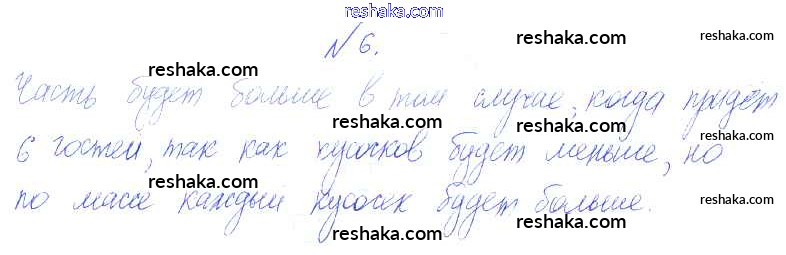 reshaka.com
№ 6.
reshaka.com reshaka.com
reshaka.com
Часть будет больше в том случае, когда придёт
reshaka.com reshaka.com reshaka.com
6 гостей, так как кусочков будет меньше, но
reshaka.com reshaka.com reshaka.com
по массе каждый кусочек будет больше.
reshaka.com reshaka.com
reshaka.com